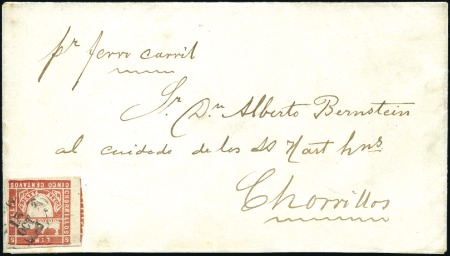 pr ferro carril
Sr Dn Alberto Bernstein
al cuidado de los SS Hart hns
Chorrillos
CINCO CENTAVOS
CHORRILLOS